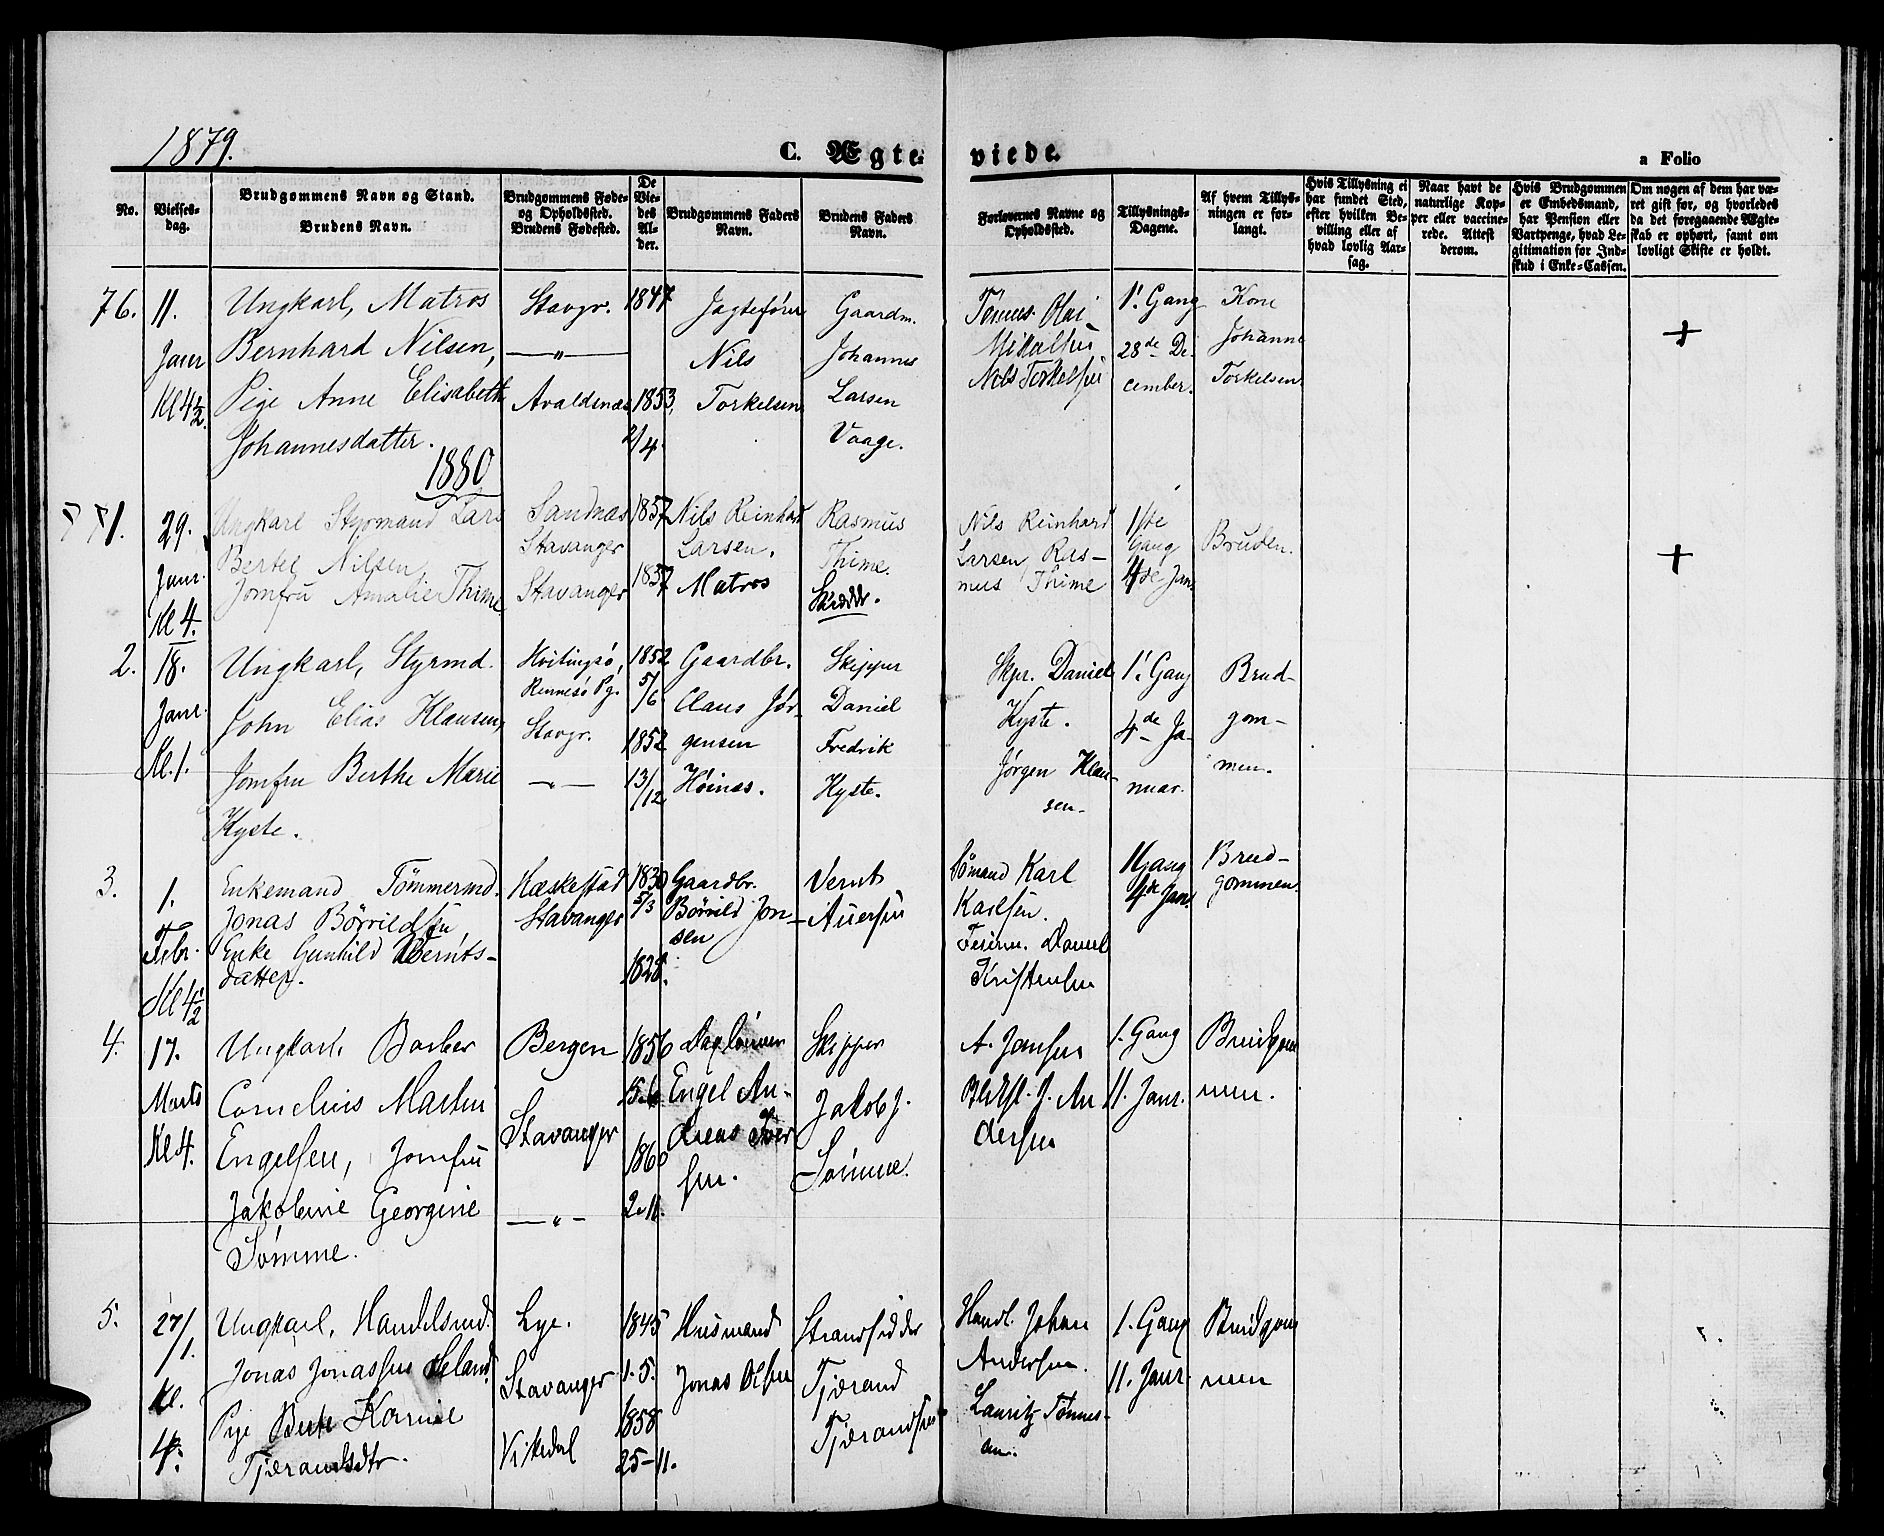 1879.
C. Ægte-
viede.
a Folio
No.
Vielses-
dag.
Brudgommens Navn og Stand.
Brudens Navn.
Brudgommens Føde-
og Opholdssted.
Brudens Fødested.
De
Vie-
des
Al-
der.
Brudgommens Faders
Navn.
Brudens Faders
Navn.
Forlovernes Navne og
Opholdssted.
Tillysnings-
Dagene.
Af hvem Tillys-
ningen er for-
langt.
Hvis Tillysning ei
har fundet Sted,
efter hvilken Be-
villing eller af
hvad lovlig Aar-
sag.
Naar havt de
naturlige Kop-
per eller vaccine-
rede. Attest
derom.
Hvis Brudgommen
er Embedsmand,
har Pension eller
Vartpenge, hvad Le-
gitimation for Ind-
skud i Enke-Cassen.
Om nogen af dem har væ-
ret gift før, og hvorledes
da det foregaaende Ægte-
skab er ophørt, samt om
lovligt Skifte er holdt.
76.
11.
Janr
Kl 4½.
Ungkarl, Matros
Bernhard Nilsen,
Pige Anne Elisabeth
Johannesdatter.
Stavgr.
—"—
Avaldsnæs
1847
1853
2/4.
Jagtefører
Nils
Torkelsen
Gaardm.
Johannes
Larsen
Vaage.
Tønnes Olai
Mikalsen
Nils Torkelsen
1'. Gang
28de De-
cember.
Kone
Johanne
Torkelsen
+
1880
1.
29.
Janr.
Kl 4.
Ungkarl Styrmand Lars
Bertel Nilsen
Jomfru Amalie Thime
Sandnæs
Stavanger
Stavanger
1857
1857
Nils Reinhard
Larsen.
Matros
Rasmus
Thime.
Skrædder.
Nils Reinhard
Larsen, Ras-
mus Thime
1ste
Gang
4de Jan.
Bruden.
+
2.
18.
Janr.
Kl. 1.
Ungkarl, Styrmd.
John Elias Klausen,
Jomfru Berthe Marie
Kyste.
Hvitingsø,
Rennesø Pg.
Stavgr.
—"—
1852
5/6
1852
13/12
Gaardbr.
Claus Jør-
gensen
Høinæs.
Skipper
Daniel
Fredrik
Kyste.
Skpr. Daniel
Kyste.
Jørgen Klau-
sen
1'. Gang
4de Ja-
nuar.
Brud-
gom-
men.
3.
1.
Febr.
Kl 4½
Enkemand Tømmermd.
Jonas Børrildsen,
Enke Gunhild Bernts-
datter.
Hæskestad
Stavanger
1830
5/3
1828.
Gaardbr.
Børrild Jon-
sen
Bernt
Auersen
Sømand Karl
Karlsen.
Daniel
Kristensen
1 Gang
4de Jan.
Brud-
gommen
4.
17.
Marts
Kl 4.
Ungkarl. Barber
Cornelius Martin
Engelsen, Jomfru
Jakobine Georgine
Sømme.
Bergen
Stavanger
—"—
1856
5.6
1860
2.11.
Dagløhner
Engel An-
dreas Iver
sen.
Skipper
Jakob J.
Sømme.
A. Jansen
J. An
dersen
1. Gang
11. Janr.
Brudgom
men.
5.
27/
1.
Kl.
4.
Ungkarl, Handelsmd.
Jonas Jonassen Heland
Pige Berte Karine
Tjærandsdtr.
Lye.
Stavanger
Vikedal
1845
1.5.
1858
25-11.
Husmand
Jonas Olsen
Strandsidder
Tjærand
Tjærandsen
Handl. Johan
Andersen.
Lauritz Tønnes-
sen.
1. Gang
11. Janr.
Brudgom
men